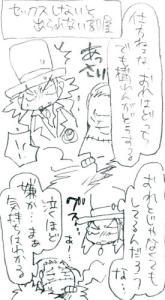 セックスしないと
出られない部屋
仕方ねぇな おれはどっ
でも構わんがどうする
あっさり
おれじゃなくても
してるんだろ?
な…
泣くほど
嫌か… まぁ
気持ちはわかる